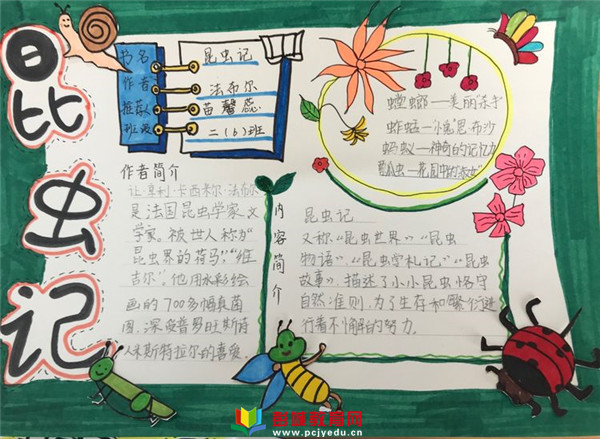 昆虫记
书名
昆虫记
作者
法布尔
推荐人
苗馨蕊
班级
二(6)班
螳螂—美丽杀手
蚱蜢—小鬼恩布沙
蚂蚁—神奇的记忆力
作者简介
让·亨利·卡西米尔·法布尔
是法国昆虫学家、文
学家。被世人称为"
昆虫界的荷马","维
吉尔"。他用水彩绘
画的700多幅真菌
图,深受普罗旺斯诗
人米斯特拉尔的喜爱。
内容简介
昆虫记
又称"昆虫世界"、"昆虫
物语"、"昆虫学札记"、"昆虫
故事",描述了小小昆虫恪守
自然准则,为了生存和繁衍进
行着不懈的努力。
彭城教育网
www.pcjyedu.cn